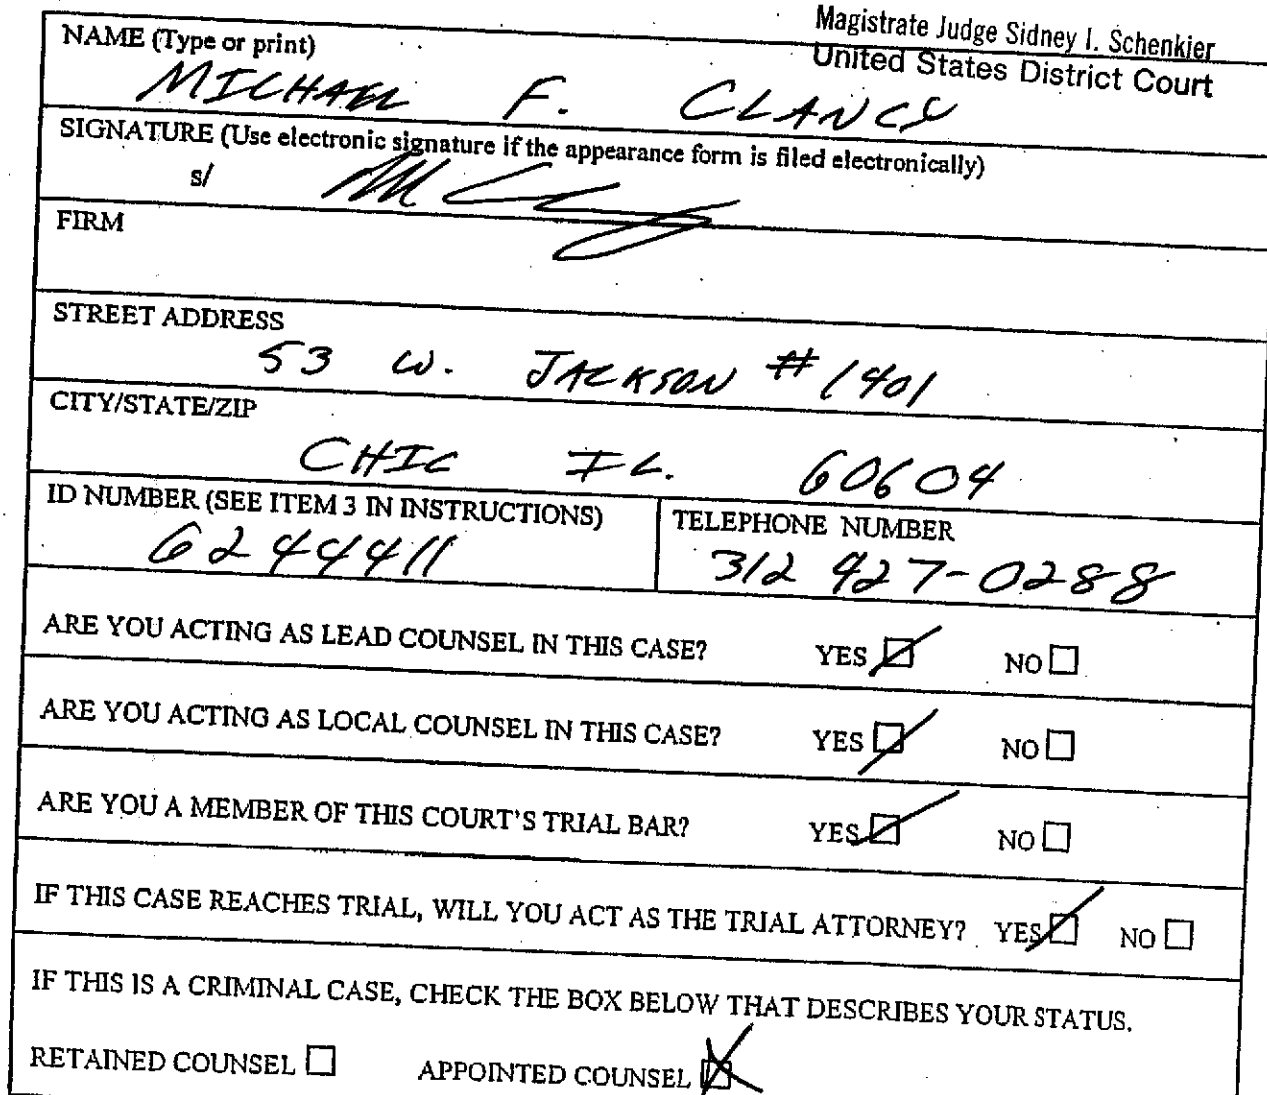 Magistrate Judge Sidney I. Schenkier
United States District Court
NAME (Type or print)
MICHAEL F. CLANCY
SIGNATURE (Use electronic signature if the appearance form is filed electronically)
s/
FIRM
STREET ADDRESS
53 W. JACKSON # 1401
CITY/STATE/ZIP
CHIC IL. 60604
ID NUMBER (SEE ITEM 3 IN INSTRUCTIONS) TELEPHONE NUMBER
6244411 312 427-0288
ARE YOU ACTING AS LEAD COUNSEL IN THIS CASE? YES NO
ARE YOU ACTING AS LOCAL COUNSEL IN THIS CASE? YES NO
ARE YOU A MEMBER OF THIS COURT'S TRIAL BAR? YES NO
IF THIS CASE REACHES TRIAL, WILL YOU ACT AS THE TRIAL ATTORNEY? YES NO
IF THIS IS A CRIMINAL CASE, CHECK THE BOX BELOW THAT DESCRIBES YOUR STATUS.
RETAINED COUNSEL APPOINTED COUNSEL